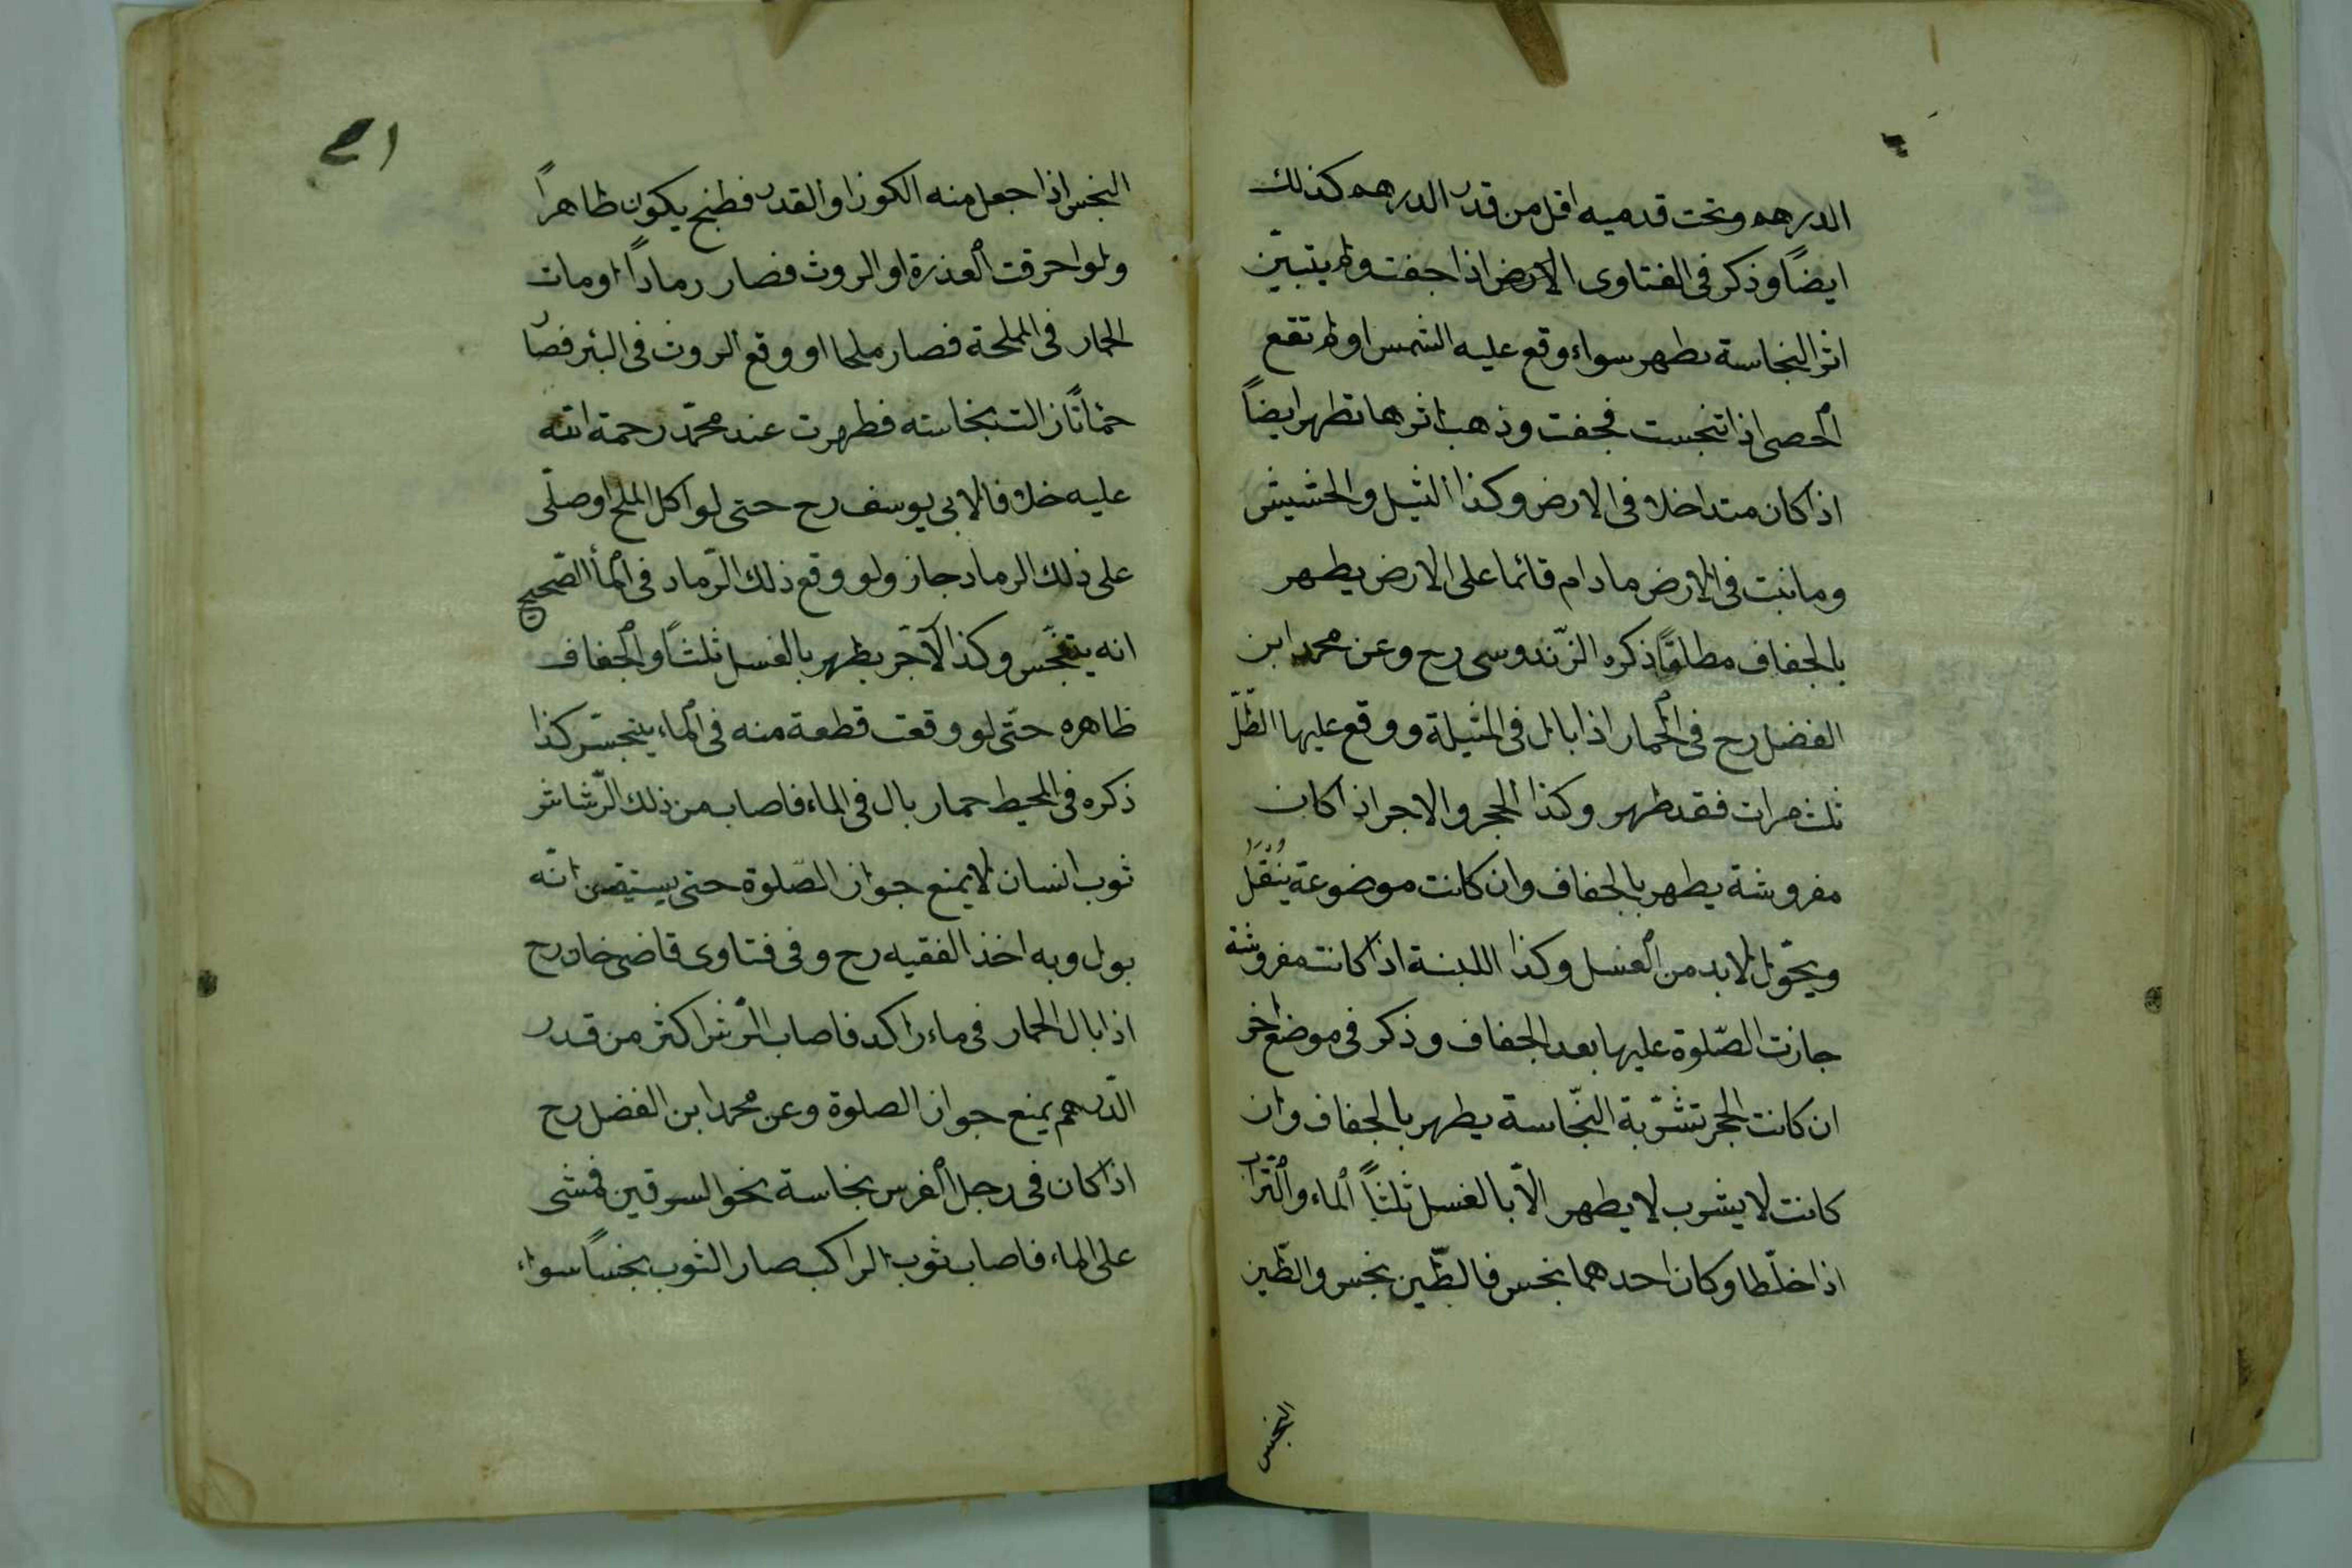 الدرهم وتحت قدميه اقل من قدر الدرهم كذلك
ايضاً وذكر فى الفتاوى الارض اذا جفت ولم يتبيّن
اثر النجاسة يطهر سواء وقع عليه الشمس او لم تقع
الحصى اذا تنجست فجفت وذهب اثرها تطهر ايضاً
اذا كان متداخلا فى الارض وكذا الثيل والحشيش
وما نبت فى الارض مادام قائما على الارض يطهر
بالجفاف مطلقاً ذكره الزّندوسى رح وعن محمد ابن
الفضل رح فى الحمار اذا بال فى المثيلة ووقع عليها الظّلّ
ثلث مرات فقد طهر وكذا الحجر والاجر اذا كان
مفروشة يطهر بالجفاف وان كانت موضوعة يُنْقَلُ
ويحوّل لا بد من الغسل وكذا اللبنة اذا كانت مفروشة
جازت الصّلوة عليها بعد الجفاف وذكر فى موضع اخر
ان كانت الحجر تشرّبة النّجاسة يطهر بالجفاف وان
كانت لا يشرب لا يطهر الّا بالغسل ثلثاً الماء والتّراب
اذا خلّطا وكان احدهما نجس فالطّين نجس والطّين
النجس
٤١
النجس اذا جعل منه الكوز او القدر فطبخ يكون طاهراً
ولو احرقت العذرة او الروث فصار رماداً او مات
الحمار فى المملحة فصار ملحا او وقع الروث فى البئر فصار
حمّاتاً زالت نجاسته فطهرت عند محمّد رحمة الله
عليه خلافا لابى يوسف رح حتى لو اكل الملح او صلّى
على ذلك الرماد جاز ولو وقع ذلك الرّماد فى المأ الصّحيح
انه يتنجّس وكذا الآجر يطهر بالغسل ثلثاً والجفاف
ظاهره حتّى لو وقعت قطعة منه فى الماء ينجّس كذا
ذكره فى المحيط حمار بال فى الماء فاصاب من ذلك الرّشاش
ثوب انسان لا يمنع جواز الصّلوة حتى يستيقن انّه
بول وبه اخذ الفقيه رح وفى فتاوى قاضى خان رح
اذا بال الحمار فى ماء راكد فاصاب الرّش اكثر من قدر
الدّرهم يمنع جواز الصلوة وعن محمد ابن الفضل رح
اذا كان فى رجل الفرس نجاسة نحو السرقين فمشى
على الماء فاصاب ثوب الراكب صار الثوب نجساً سواء